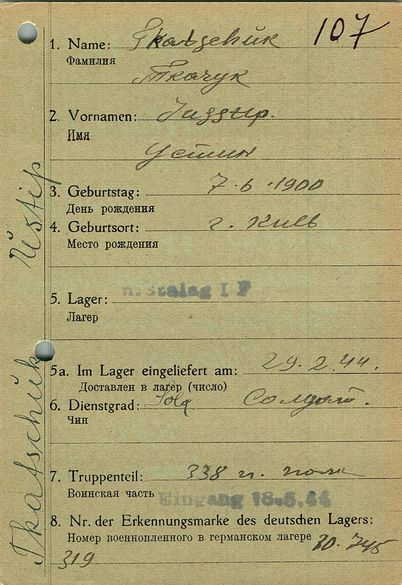 107
1. Name: Tkatschuk
Фамилия
Ткачук
2. Vornamen:
Имя
Устин
3. Geburtstag: 7.6.1900
День рождения
4. Geburtsort: г. Киев
Место рождения
Stalag I F
5. Lager:
Лагер
5a. Im Lager eingeliefert am: 29.2.44.
Доставлен в лагер (число)
6. Dienstgrad: Sold Солдат.
Чин
7. Truppenteil: 338 полк
Воинская часть Eingang 18.5.44
8. Nr. der Erkennungsmarke des deutschen Lagers:
Номер военнопленного в германском лагере
319
Tkatschuk Ustip